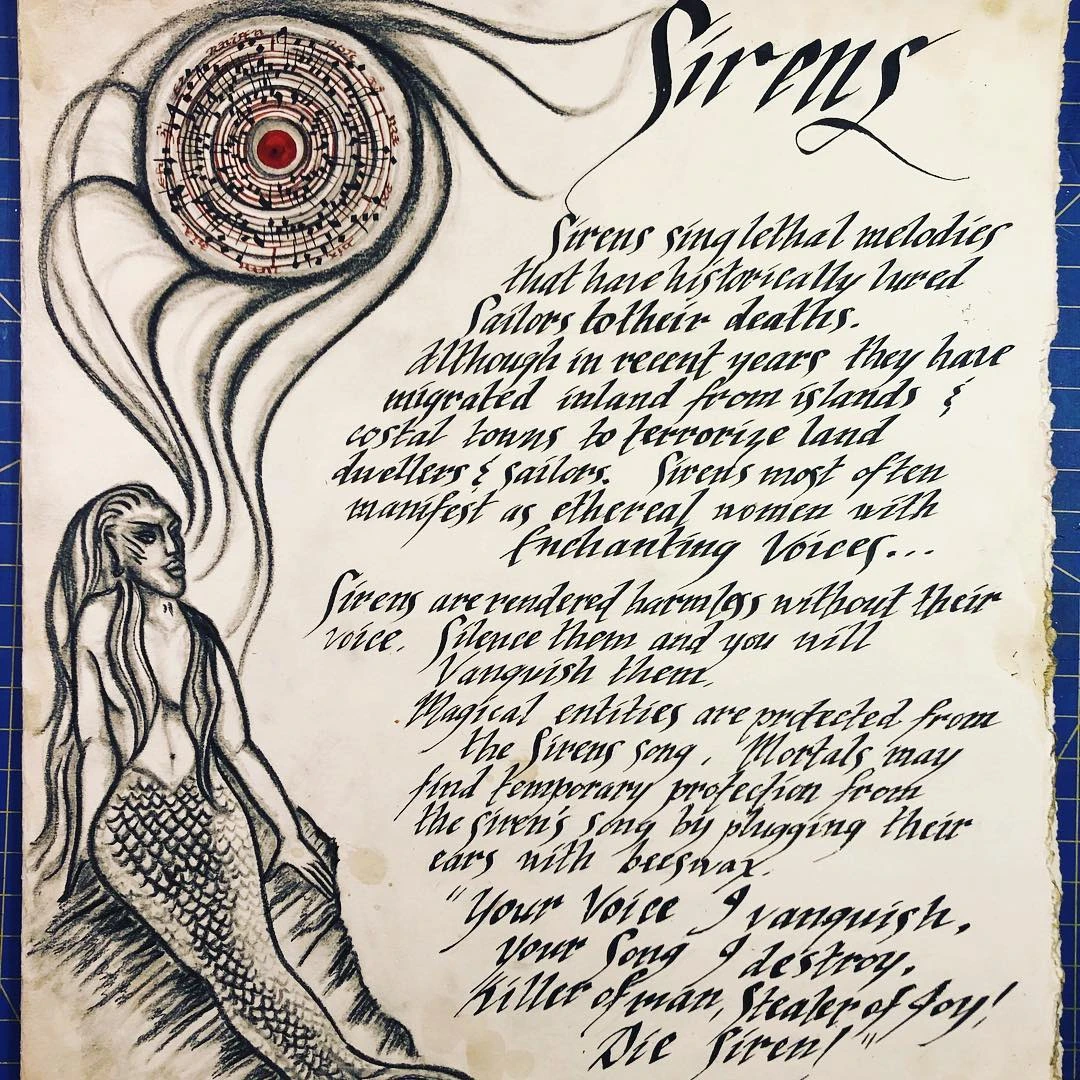 Sirens
Sirens sing lethal melodies
that have historically lured
Sailors to their deaths.
Although in recent years they have
migrated inland from islands &
costal towns to terrorize land
dwellers & sailors. Sirens most often
manifest as ethereal women with
Enchanting Voices...
Sirens are rendered harmless without their
voice. Silence them and you will
Vanquish them.
Magical entities are protected from
the Sirens song. Mortals may
find temporary protection from
the siren's song by plugging their
ears with beeswax.
"Your Voice I vanquish,
your Song I destroy,
Killer of man, Stealer of Joy!
Die Siren!"